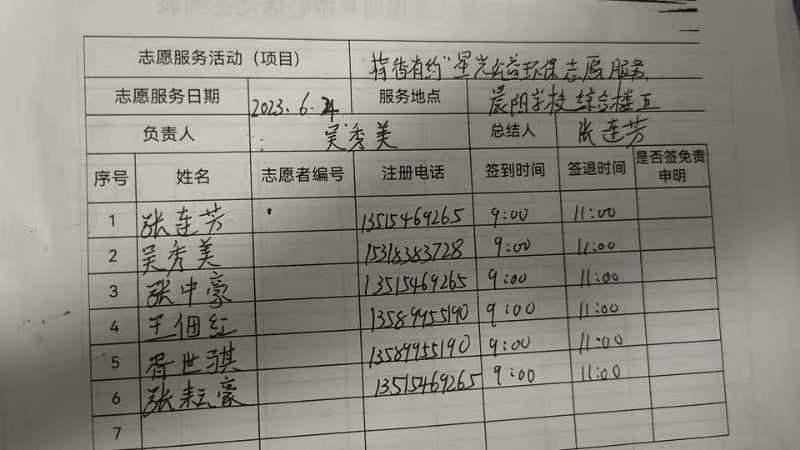 志愿服务活动（项目） 持待有约"星光公益环保志愿服务
志愿服务日期 2023.6.24 服务地点 晨阳学校综合楼五
负责人 吴秀美 总结人 张连芳
序号 姓名 志愿者编号 注册电话 签到时间 签退时间 是否签免责申明
1 张连芳 13515469265 9:00 11:00
2 吴秀美 15318383728 9:00 11:00
3 张中豪 13515469265 9:00 11:00
4 王佃红 13589955190 9:00 11:00
5 胥世骐 13589955190 9:00 11:00
6 张耘豪 13515469265 9:00 11:00
7